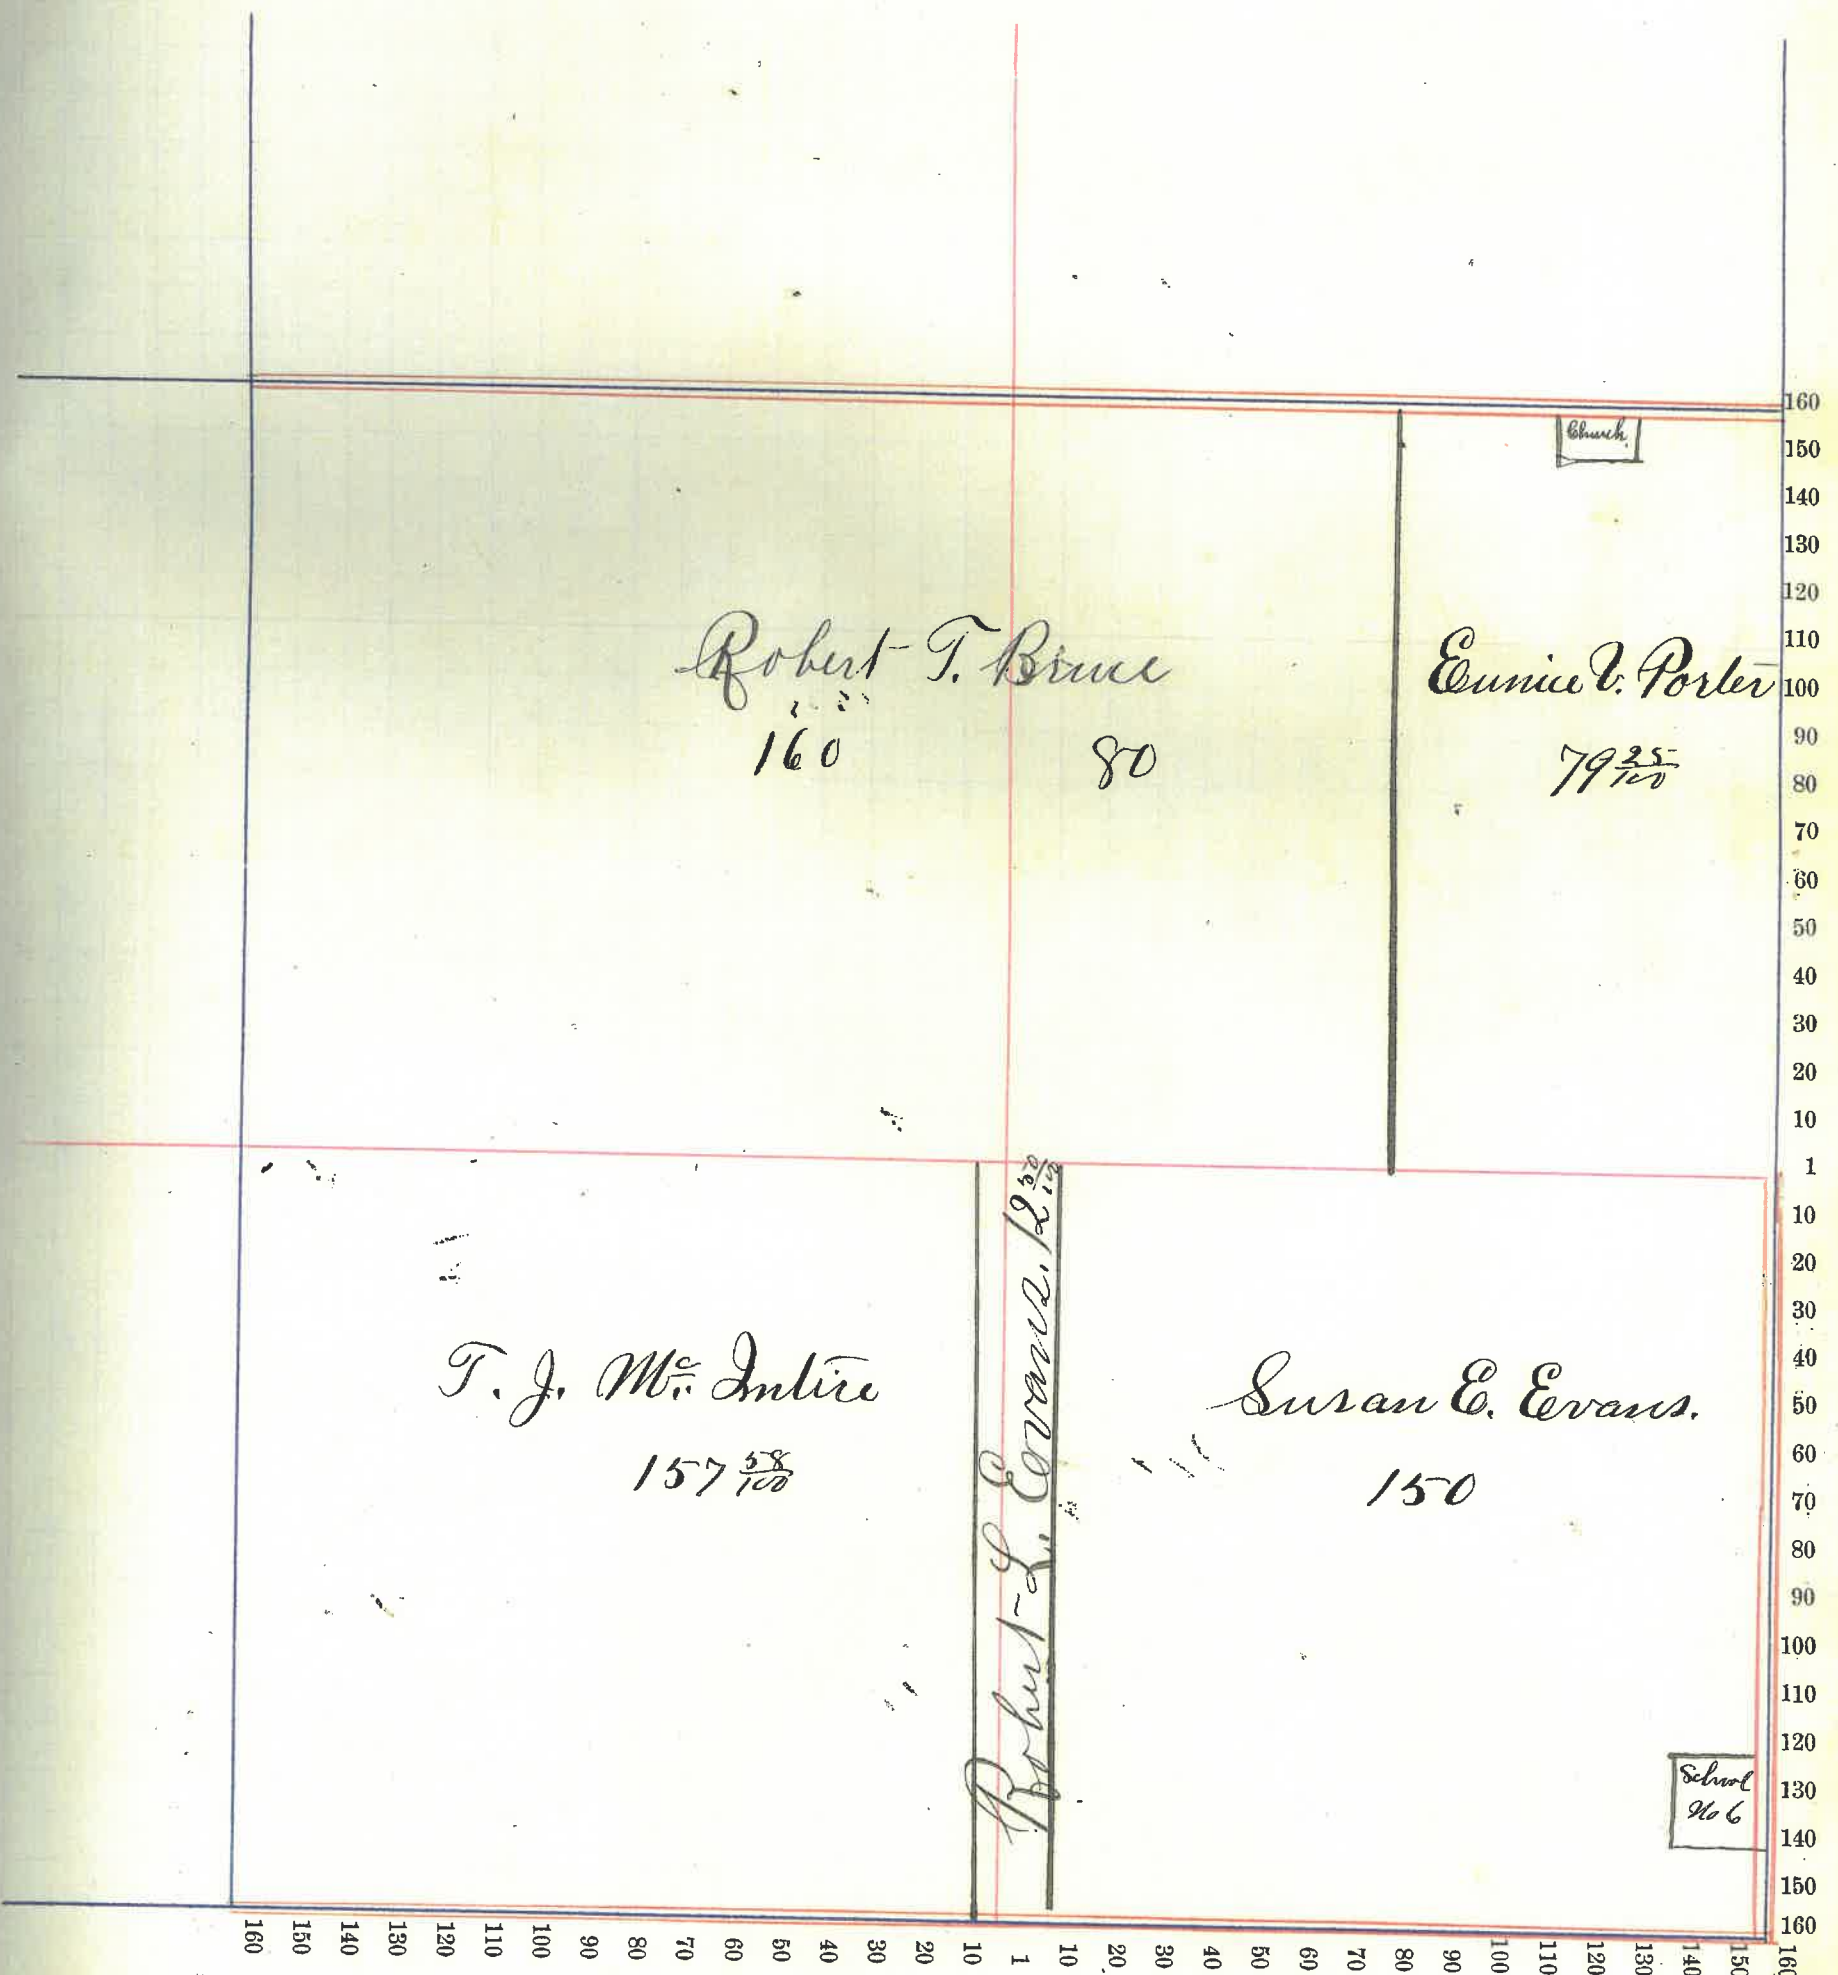 Church.
Robert T. Bruce
160 80
Eunice V. Porter
79 25/100
T. J. Mc. Intire
157 58/100
Robert L. Evans. 12 50/100
Susan E. Evans.
150
School
No 6
160
150
140
130
120
110
100
90
80
70
60
50
40
30
20
10
1
10
20
30
40
50
60
70
80
90
100
110
120
130
140
150
160
160 150 140 130 120 110 100 90 80 70 60 50 40 30 20 10 1 10 20 30 40 50 60 70 80 90 100 110 120 130 140 150 160